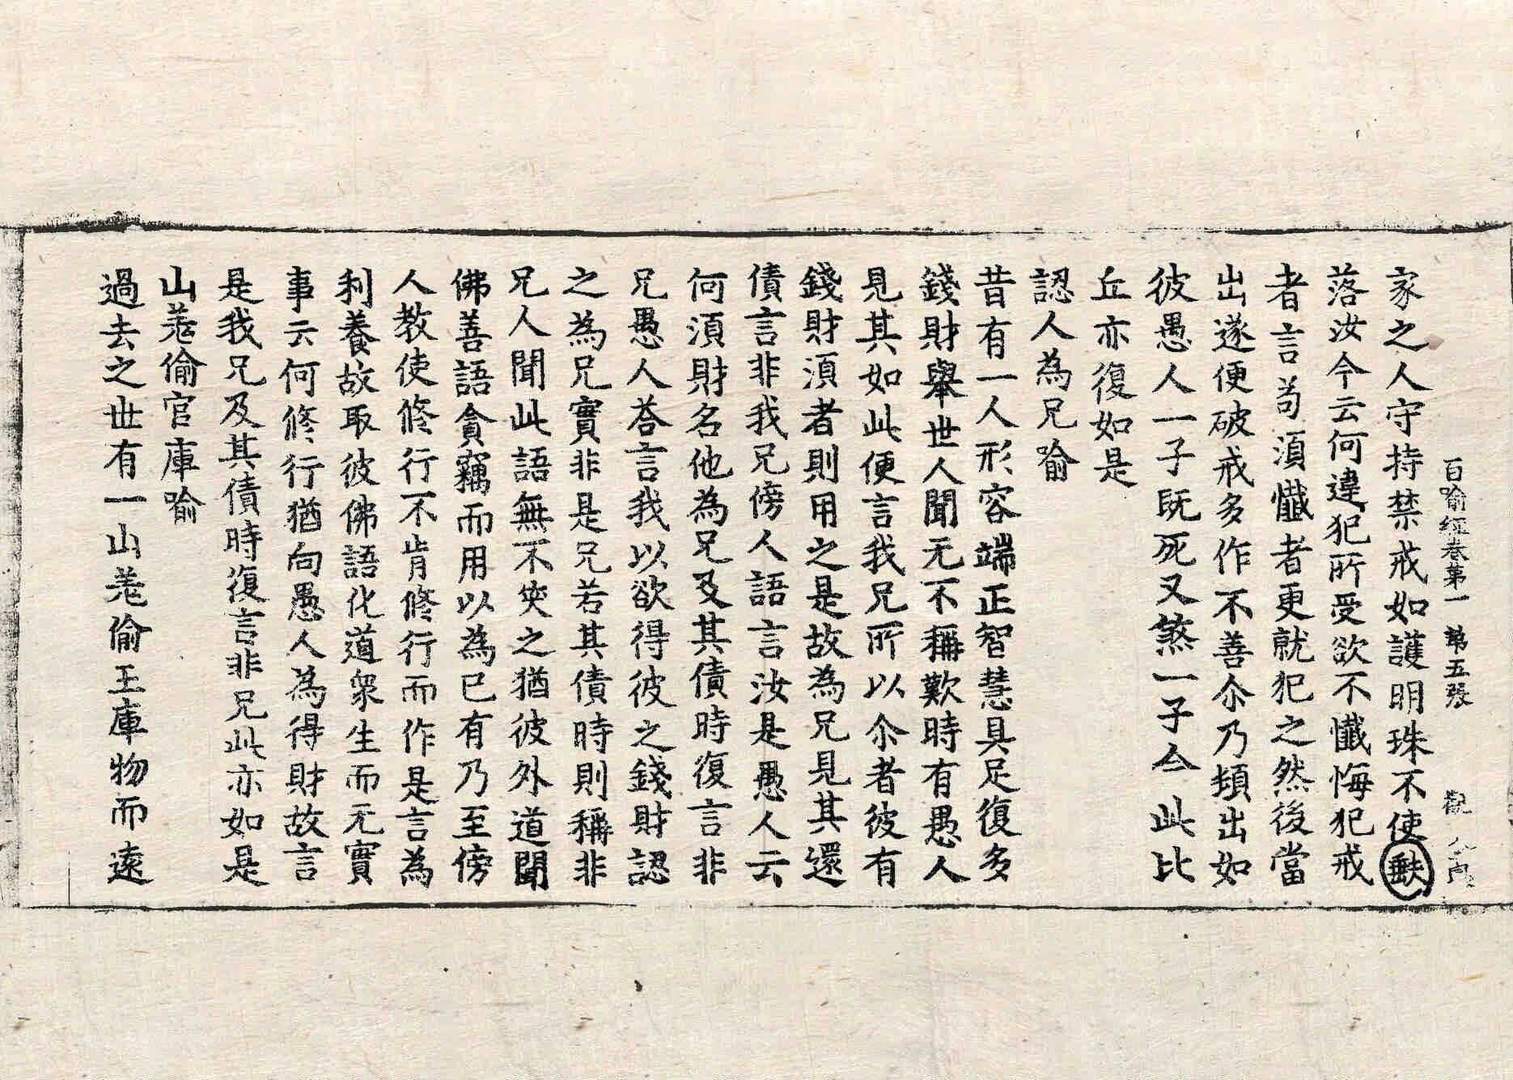 百喻經卷第一 第五張 觀
家之人守持禁戒如護明珠不使缺
落汝今云何違犯所受欲不懺悔犯戒
者言苟湏懺者更就犯之然後當
出遂便破戒多作不善尒乃頓出如
彼愚人一子旣死又煞一子今此比
丘亦復如是
認人為兄喻
昔有一人形容端正智慧具足復多
錢財舉世人聞无不稱歎時有愚人
見其如此便言我兄所以尒者彼有
錢財湏者則用之是故為兄見其還
債言非我兄傍人語言汝是愚人云
何湏財名他為兄及其債時復言非
兄愚人荅言我以欲得彼之錢財認
之為兄實非是兄若其債時則稱非
兄人聞此語無不笑之猶彼外道聞
佛善語貪竊而用以為已有乃至傍
人教使修行不肯修行而作是言為
利養故取彼佛語化道衆生而无實
事云何修行猶向愚人為得財故言
是我兄及其債時復言非兄此亦如是
山羗偷官庫喻
過去之世有一山羗偷王庫物而遠